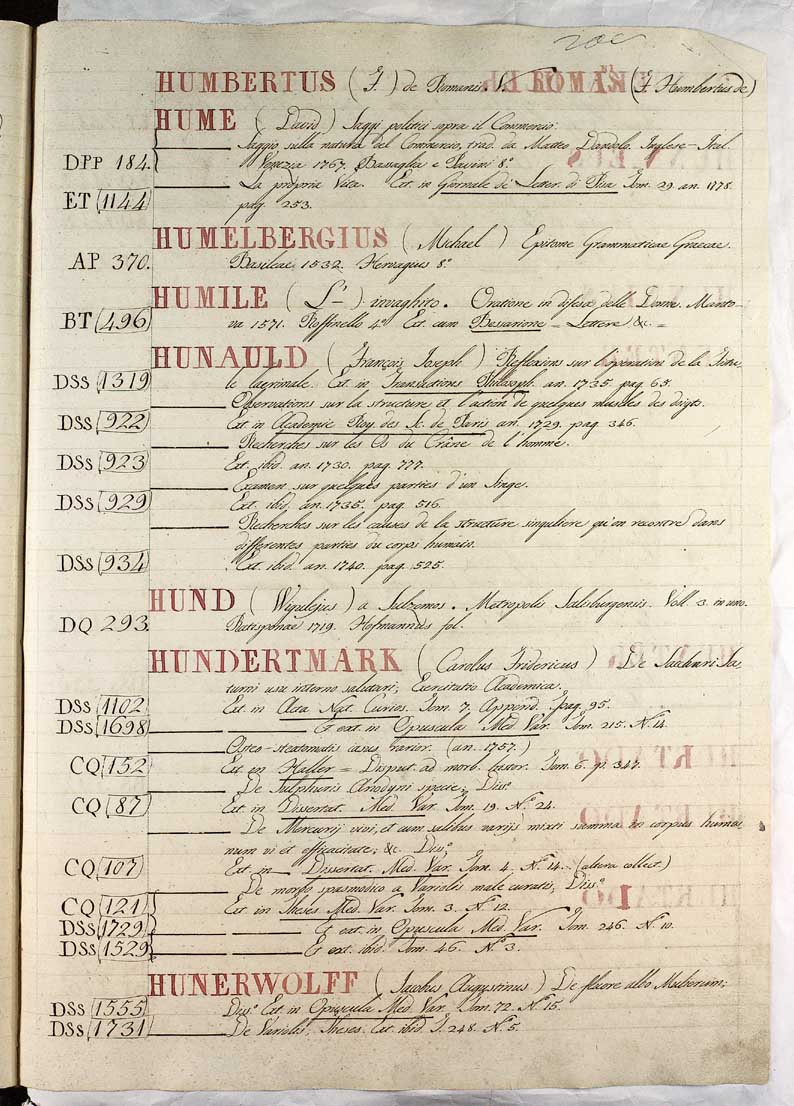 200
HUMBERTUS (J.) de Romanis. V. ROMANIS (J. Humbertus de)
HUME (David) Saggi politici sopra il Commercio.
Saggio sulla natura del Commercio, trad. da Matteo Dandolo. Inglese-Ital.
DPP 184. Venezia 1767. Bassaglia e Pavini 8°
La propria Vita. Ext. in Giornale de' Letter. di Pisa Tom. 29. an. 1778.
ET 1144 pag. 253.
HUMELBERGIUS (Michael) Epitome Grammaticae Graecae.
AP 370. Basileae 1532. Hervagius 8°
HUMILE (L') invaghito. Oratione in difesa delle Donne. Manto-
BT 496 va 1571. Roffinello 4° Ext. cum Bessarione = Lettere &c. =
HUNAULD (François Joseph) Reflexions sur l'operation de la Fistu-
DSS 1319 le lacrimale. Ext. in Transactions Philosoph. an. 1735. pag. 65.
Observations sur la structure et l'action de quelques muscles des doigts.
DSS 922 Ext. in Academie Roy. des Sc. de Paris an. 1729. pag. 346.
Recherches sur les Os du Crâne de l'homme.
DSS 923 Ext. ibid. an. 1730. pag. 777.
Examen sur quelques parties d'un Singe.
DSS 929 Ext. ibid. an. 1735. pag. 516.
Recherches sur les causes de la structure singuliere qu'on recontre dans
differentes parties du corps humain.
DSS 934 Ext. ibid. an. 1740. pag. 525.
HUND (Wigulejus) a Sulzemos. Metropolis Salisburgensis. Voll. 3. in uno.
DQ 293. Ratisponae 1719. Hofmannus fol.
HUNDERTMARK (Carolus Fridericus) De Sacchari Sa-
turni usu interno salutari; Exercitatio Academica.
DSS 1102 Ext. in Acta Nat. Curios. Tom. 7. Append. pag. 95.
DSS 1698 Et ext. in Opuscula Med. Var. Tom. 215. N.° 14.
Osteo-steatomatis casus rarior. (an. 1757.)
CQ 152 Ext. in Haller = Disput. ad morb. histor. Tom. 6. p. 347.
De Sulphuris Anodyni specie; Diss.°
CQ 87 Ext. in Dissertat. Med. Var. Tom. 19. N.° 24.
De Mercurij vivi, et cum salibus varijs mixti summa in corpus huma-
num vi et efficacitate; &c. Diss.°
CQ 107 Ext. in Dissertat. Med. Var. Tom. 4. N.° 14. (altera collect)
De morbo spasmodico a Variolis male curatis; Diss.°
CQ 121 Ext. in Theses Med. Var. Tom. 3. N.° 12.
DSS 1729 Et ext. in Opuscula Med. Var. Tom. 246. N.° 10.
DSS 1529 Et ext. ibid. Tom. 46. N.° 3.
HUNERWOLFF (Jacobus Augustinus) De fluore albo Mulierum;
DSS 1555 Diss.° Ext. in Opuscula Med. Var. Tom. 72. N.° 15.
DSS 1731 De Variolis. Theses. Ext. ibid. T. 248. N.° 5.